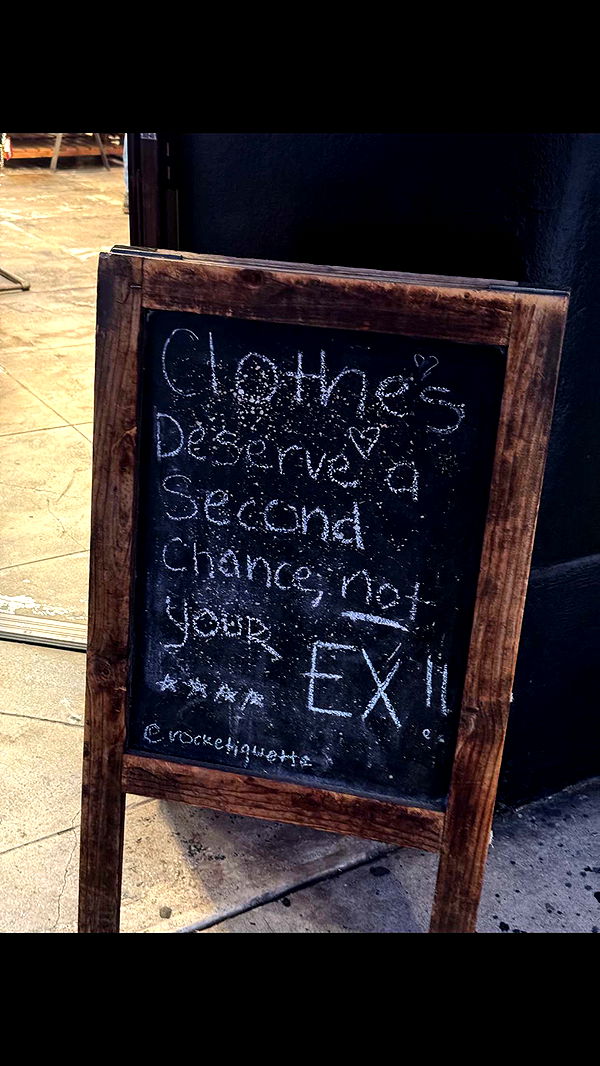 Clothe's
Deserve a
Second
Chance, not
YOUR
EX!!
@rocketiquette